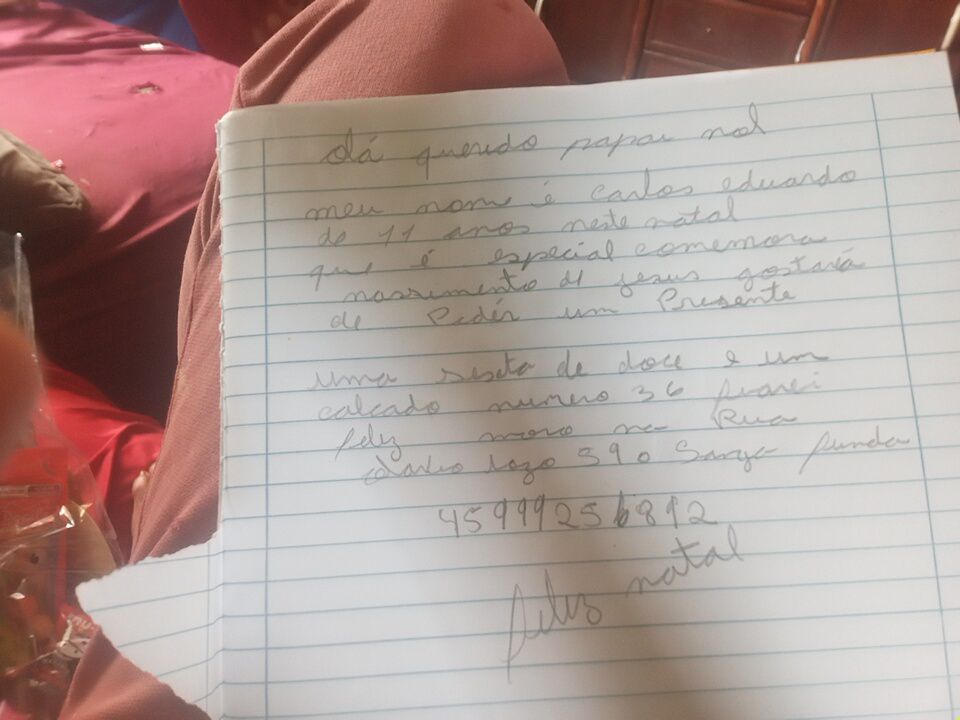 olá querido papai noel
meu nome é carlos eduardo
de 11 anos neste natal
que é especial comemora
nassimento de jesus gostaria
de Pedir um Presente
uma sesta de doce e um
calcado numero 36 ficarei
feliz moro na Rua
590 Sanga funda
45999256892
feliz natal